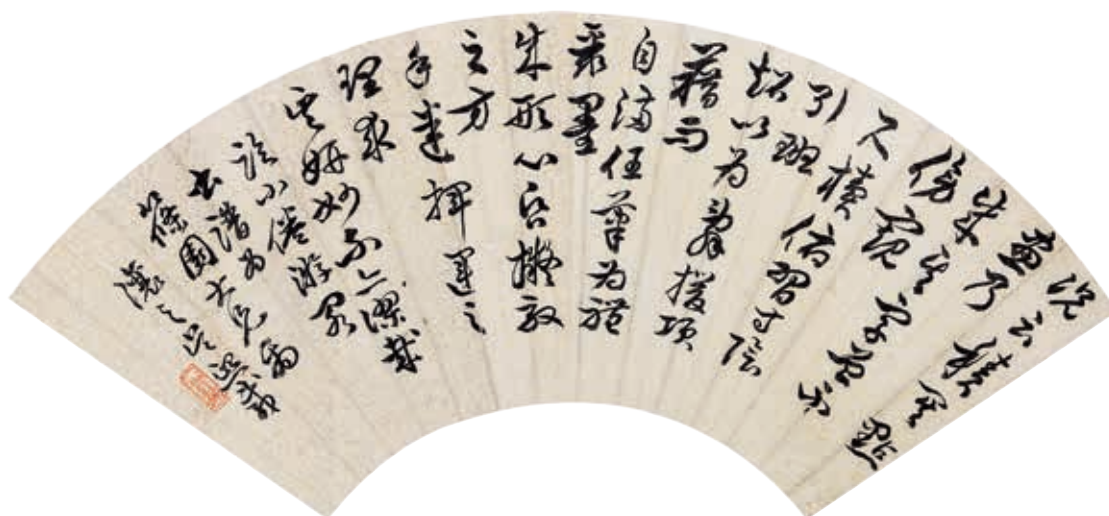 況云積其點
畫乃
成其字曾不
傍窺
尺牘俯習寸陰
引班
超以為辭援項
籍而
自滿任筆為體
聚墨
成形心昏擬效
之方
手迷揮運之
理求
其妍妙不亦謬哉
小倦游閣
書譜為
篠園大兄屬
讓之吳熙載